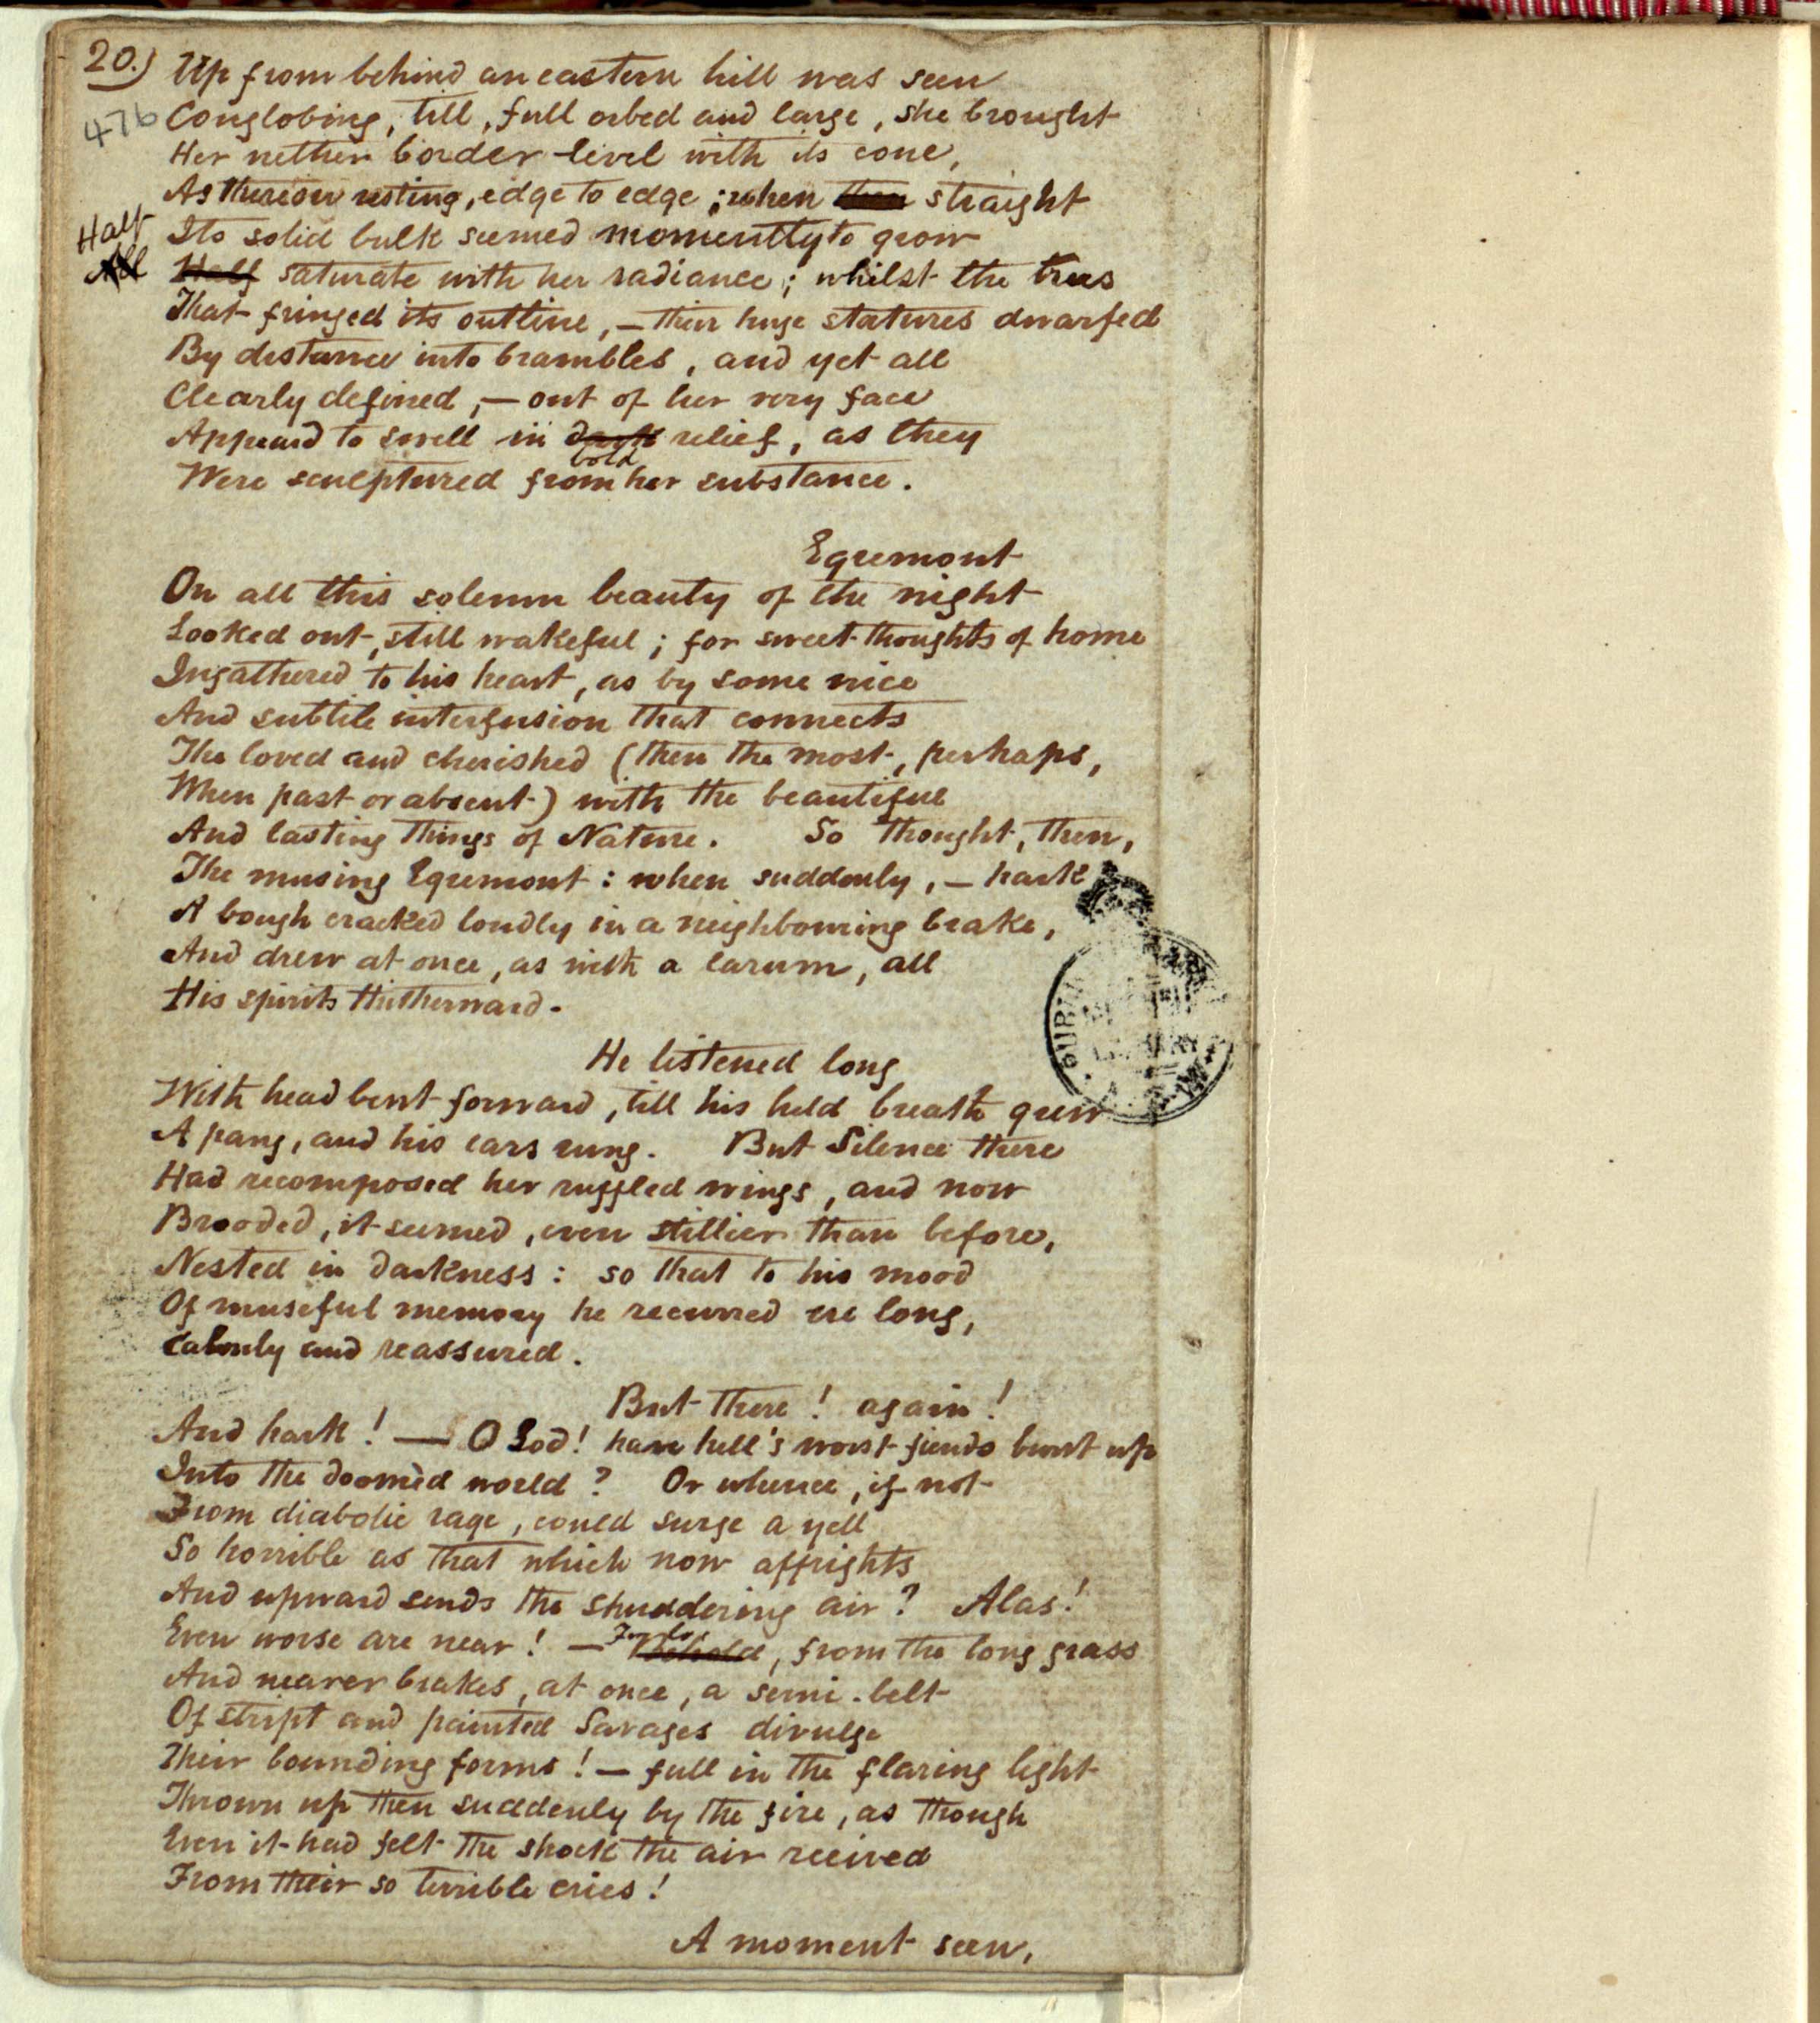 20.)
476
Up from behind an eastern hill was seen
Conglobing, till, full orbed and large, she brought
Her nether border level with its cone,
As thereon resting, edge to edge; when then straight
Its solid bulk seemed momently to grow
Half
All
Half saturate with her radiance; whilst the trees
That fringed its outline, — their huge statures dwarfed
By distance into brambles, and yet all
Clearly defined, — out of her very face
Appeard to swell in dark relief, as they
bold
Were sculptured from her substance.
Egremont
On all this solemn beauty of the night
Looked out, still wakeful; for sweet thoughts of home
Ingathered to his heart, as by some nice
And subtile interfusion that connects
The loved and cherished (then the most, perhaps,
When past or absent) with the beautiful
And lasting things of Nature. So thought, then,
The musing Egremont: when suddenly, — hark
A bough cracked loudly in a neighbouring brake,
And drew at once, as with a larum, all
His spirits thitherward.
He listened long
With head bent forward, till his held breath grew
A pang, and his ears rung. But Silence there
Had recomposed her ruffled wings, and now
Brooded, it seemed, even stillier than before,
Nested in darkness: so that to his mood
Of museful memory he recurred ere long,
Calmly and reassured.
But there! again!
And hark! — O God! have hell's worst fiends burst up
Into the doomèd world? Or whence, if not
From diabolic rage, could surge a yell
So horrible as that which now affrights
And upward sends the shuddering air? Alas!
Even worse are near! — For lo Behold, from the long grass
And nearer brakes, at once, a semi-belt
Of stript and painted Savages divulge
Their bounding forms! — full in the flaring light
Thrown up then suddenly by the fire, as though
Even it had felt the shock the air received
From their so terrible cries!
A moment seen,